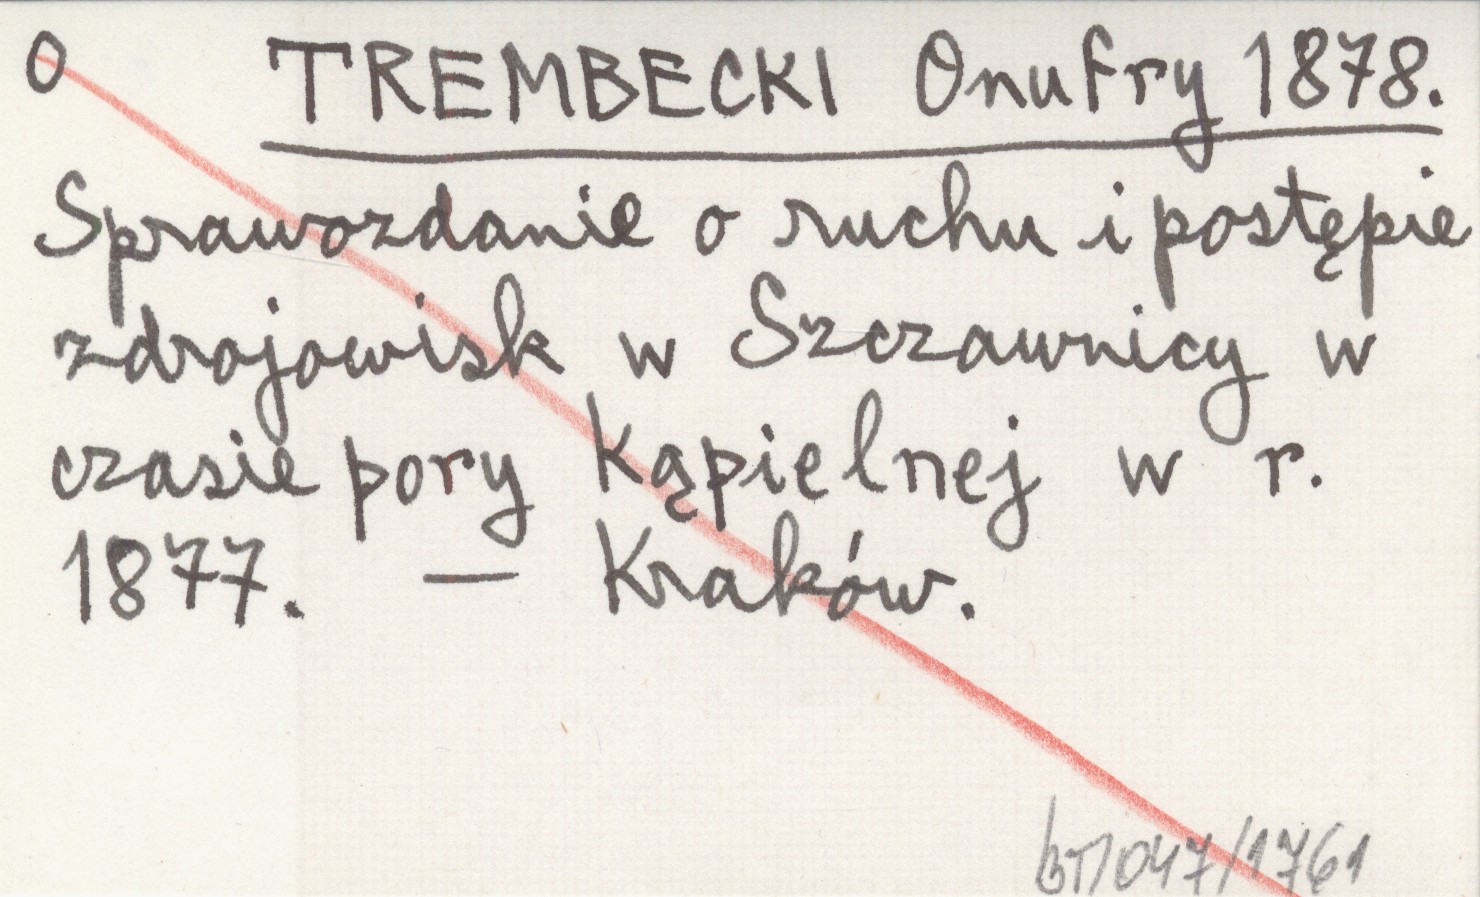 O TREMBECKI Onufry 1878.
Sprawozdanie o ruchu i postępie
zdrojowisk w Szczawnicy w
czasie pory kąpielnej w r.
1877. — Kraków.
bT/047/1761